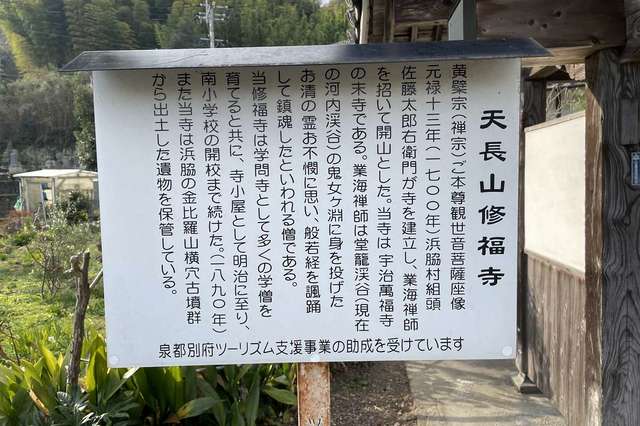 天長山修福寺
黄檗宗(禅宗)ご本尊観世音菩薩座像
元禄十三年(一七〇〇年)浜脇村組頭
佐藤太郎右衛門が寺を建立し、業海禅師
を招いて開山とした。当寺は宇治萬福寺
の末寺である。業海禅師は堂龍渓谷(現在
の河内渓谷)の鬼女ヶ淵に身を投げた
お清の霊お不憫に思い、般若経を諷踊
して鎮魂したといわれる僧である。
当修福寺は学問寺として多くの学僧を
育てると共に、寺小屋として明治に至り、
南小学校の開校まで続けた。(一八九〇年)
また当寺は浜脇の金比羅山横穴古墳群
から出土した遺物を保管している。
泉都別府ツーリズム支援事業の助成を受けています